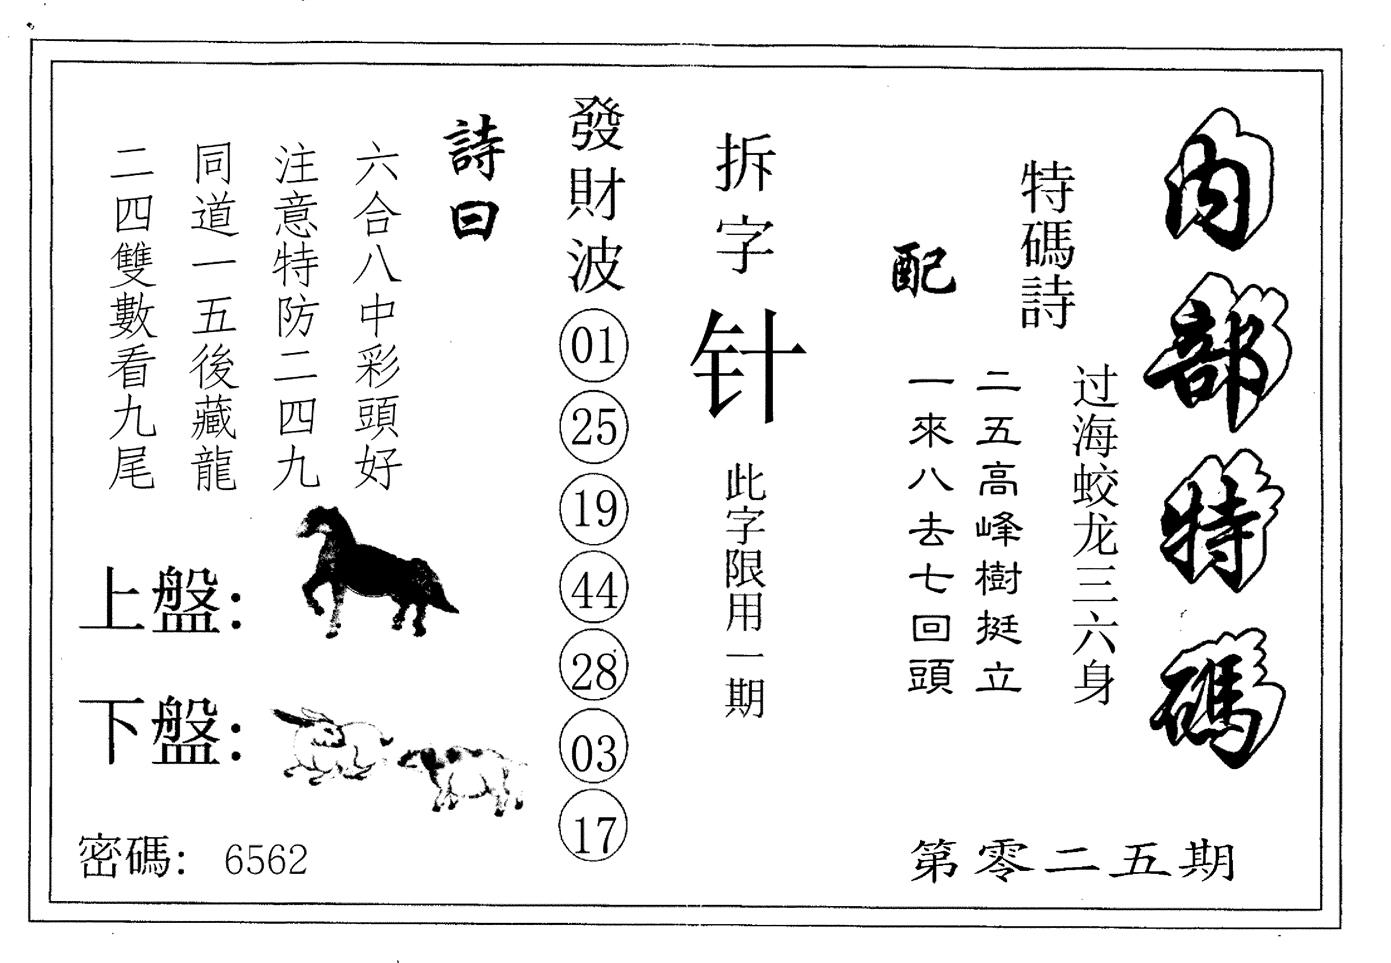 內部特碼
特碼詩
过海蛟龙三六身
配
二五高峰樹挺立
一來八去七回頭
第零二五期
拆字
针
此字限用一期
發財波
01
25
19
44
28
03
17
詩曰
六合八中彩頭好
注意特防二四九
同道一五後藏龍
二四雙數看九尾
上盤：
下盤：
密碼： 6562